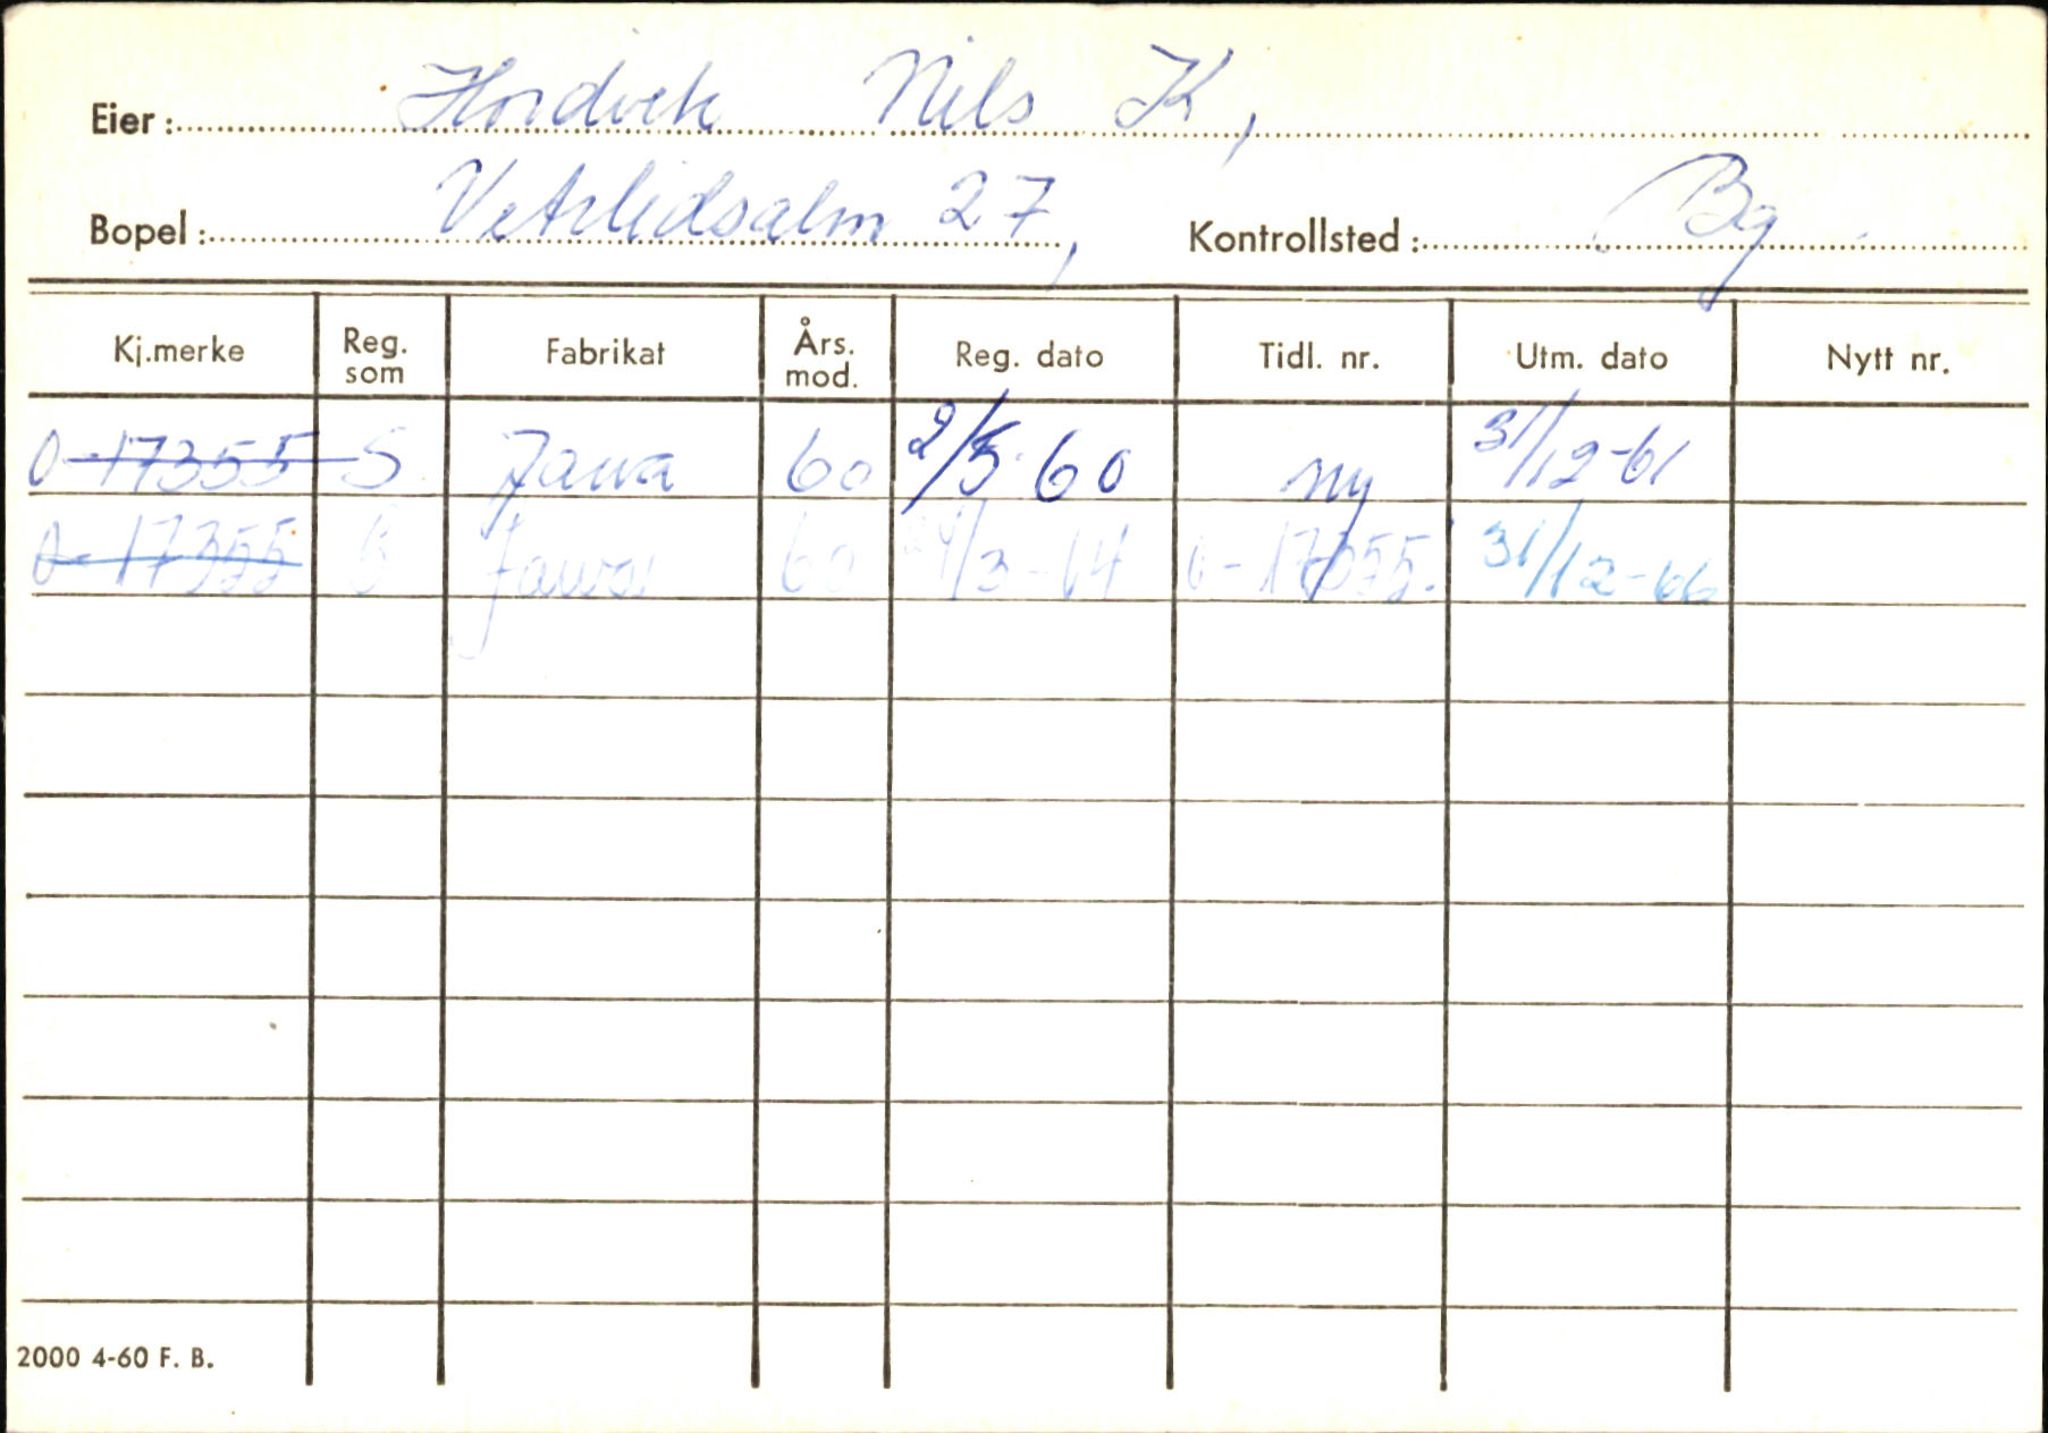 Eier: Hordvik Nils K,
Bopel: Vetrlidsalm 27, Kontrollsted: Bg
Kj.merke Reg. som Fabrikat Års. mod. Reg. dato Tidl. nr. Utm. dato Nytt nr.
O-17355 S Jawa 60 2/5 60 ny 31/12-61
O-17355 Jawa 60 /3-64 31/12-66
2000 4-60 F. B.